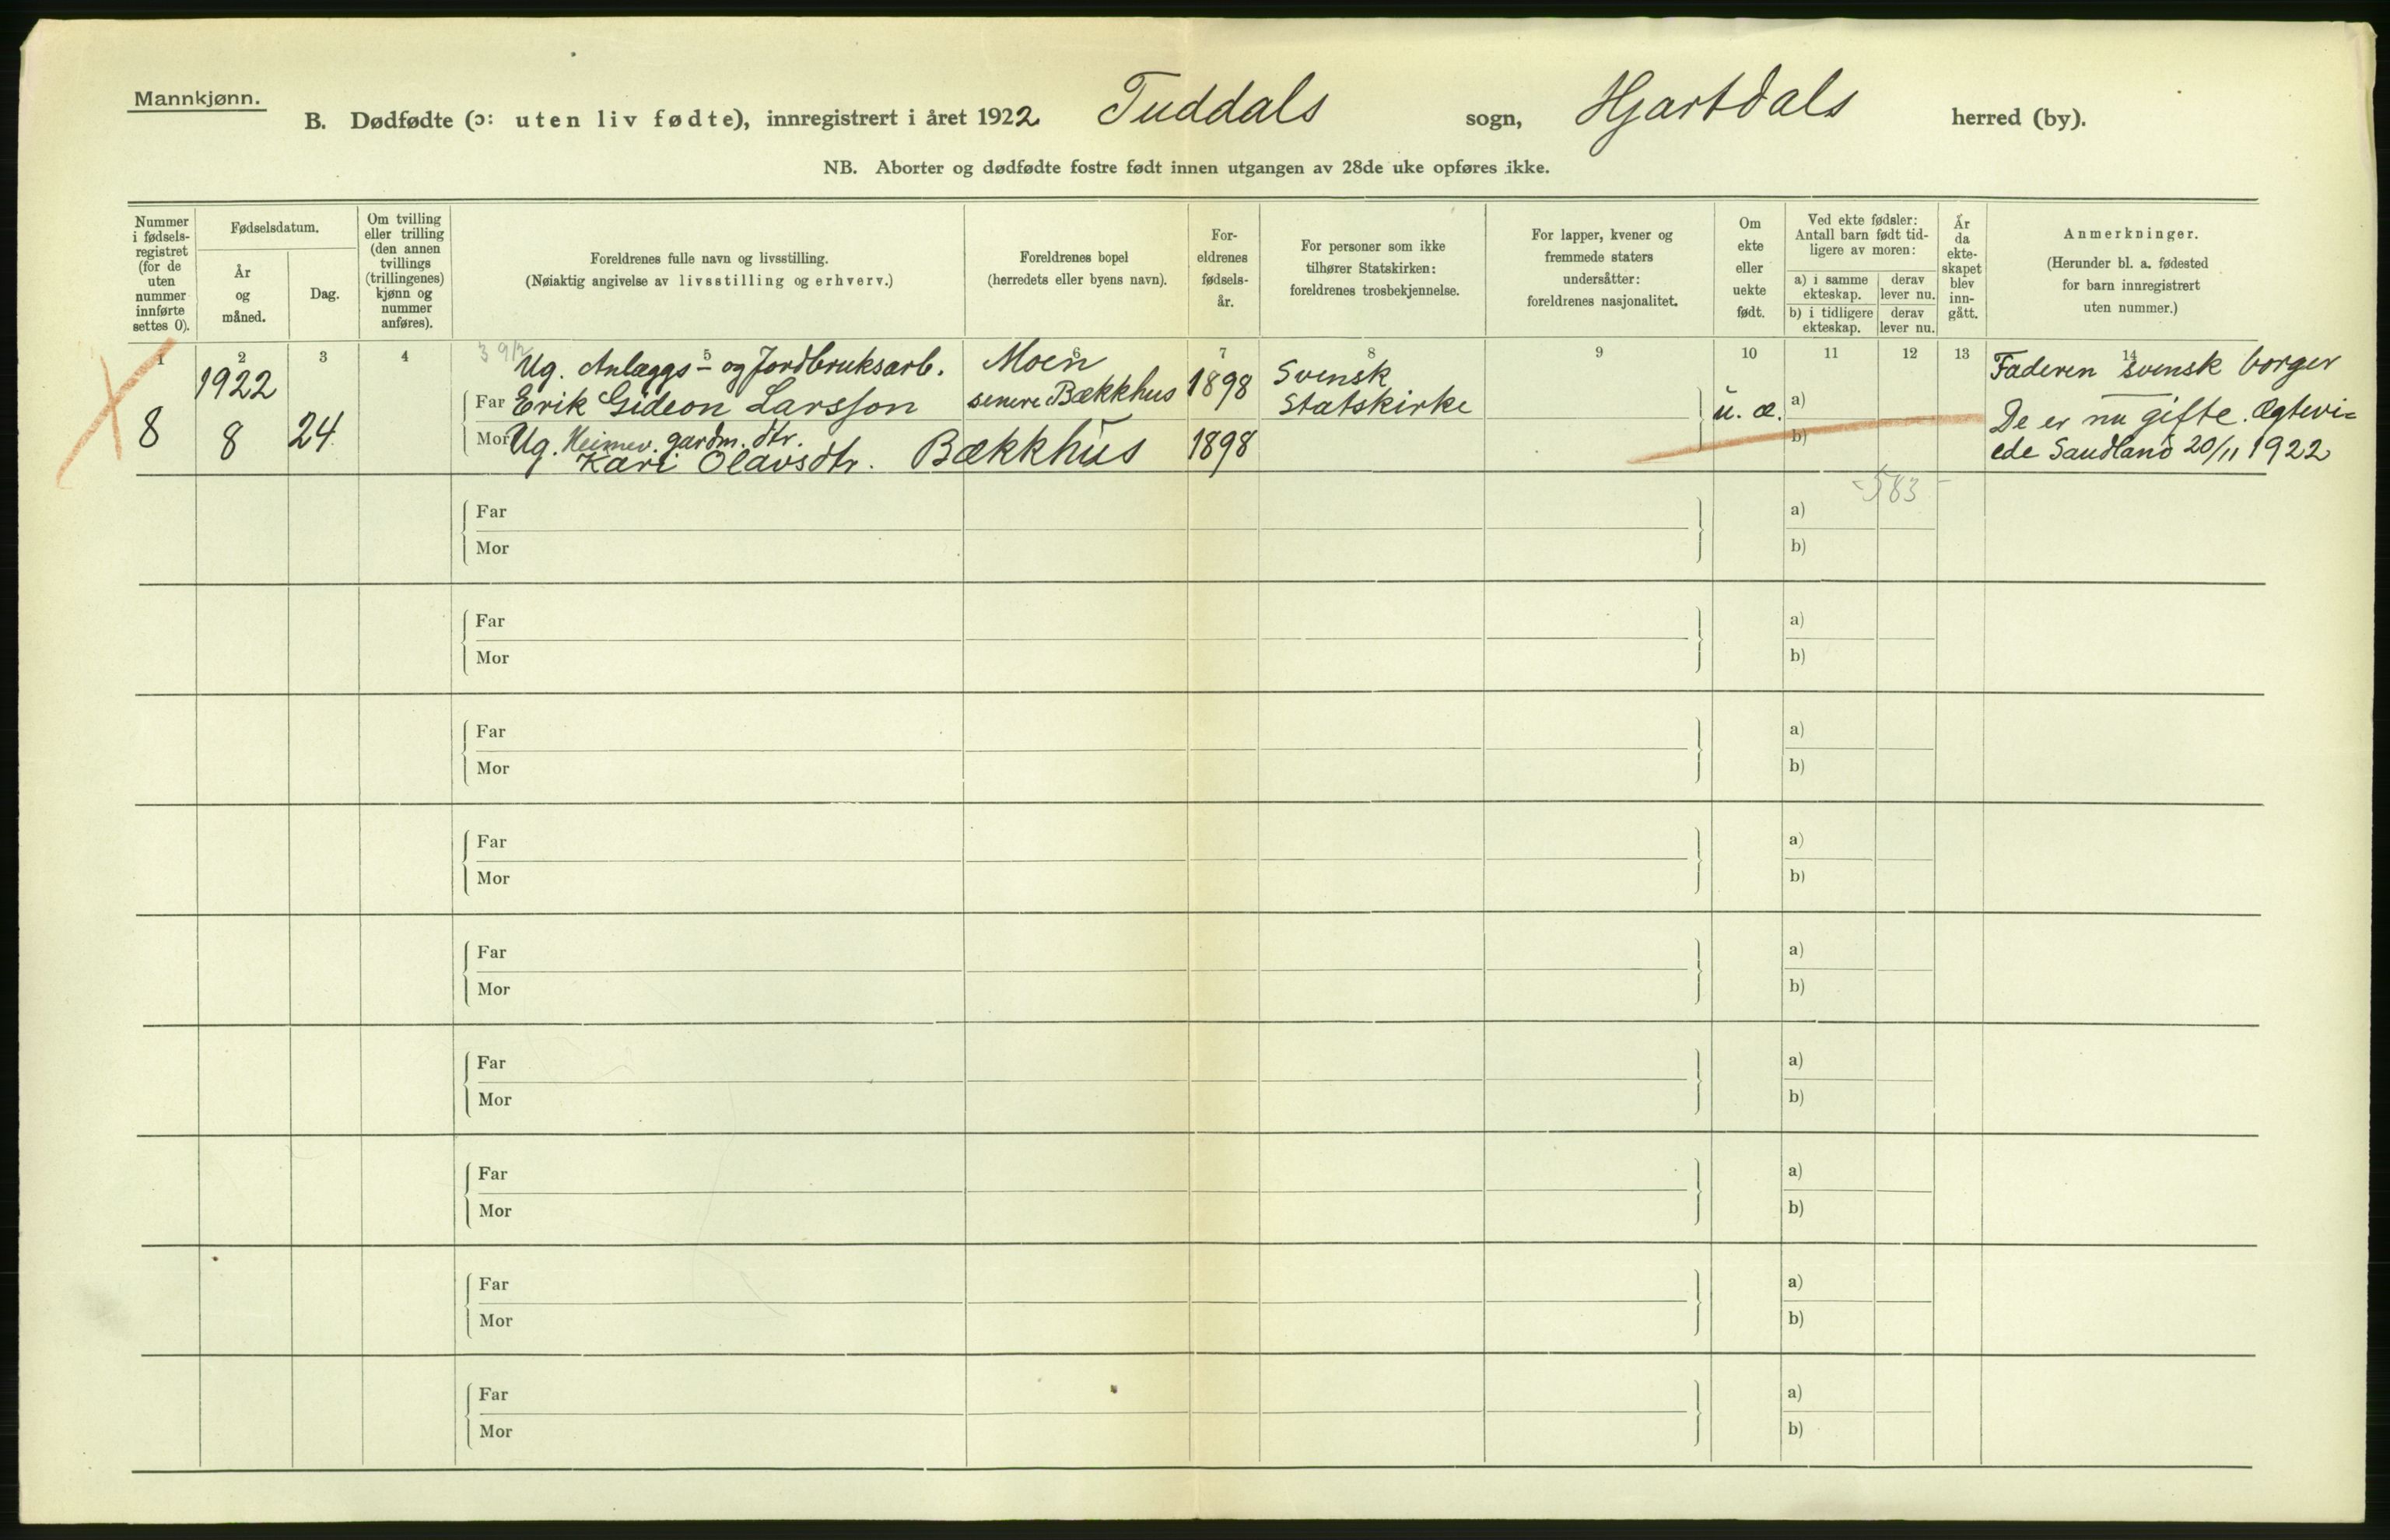 Mannkjønn.
B. Dødfødte (ɔ: uten liv fødte), innregistrert i året 1922 Tuddals sogn, Hjartdals herred (by).
NB. Aborter og dødfødte fostre født innen utgangen av 28de uke opføres ikke.
Nummer
i fødsels-
registret
(for de
uten
nummer
innførte
settes 0).
Fødselsdatum.
År
og
måned.
Dag.
Om tvilling
eller trilling
(den annen
tvillings
(trillingenes)
kjønn og
nummer
anføres).
Foreldrenes fulle navn og livsstilling.
(Nøiaktig angivelse av livsstilling og erhverv.)
Foreldrenes bopel
(herredets eller byens navn).
For-
eldrenes
fødsels-
år.
For personer som ikke
tilhører Statskirken:
foreldrenes trosbekjennelse.
For lapper, kvener og
fremmede staters
undersåtter:
foreldrenes nasjonalitet.
Om
ekte
eller
uekte
født.
Ved ekte fødsler:
Antall barn født tid-
ligere av moren:
a) i samme
ekteskap.
derav
lever nu.
b) i tidligere
ekteskap.
derav
lever nu.
År
da
ekte-
skapet
blev
inn-
gått.
Anmerkninger.
(Herunder bl. a. fødested
for barn innregistrert
uten nummer.)
1 2 3 4 5 6 7 8 9 10 11 12 13 14
8
1922
8
24.
Ug. Anlæggs- og Jordbruksarb.
Far Erik Gideon Larsson
Mor Ug. Heimev. gardm. dtr.
Kari Olavsdtr. Bækkhus
Moen
senere Bækkhus
1898
1898
Svensk
Statskirke
u. æ.
a)
b)
Faderen svensk borger
De er nu gifte. Ægtevi=
ede Saudland 20/11 1922
-583-
Far a)
Mor b)
Far a)
Mor b)
Far a)
Mor b)
Far a)
Mor b)
Far a)
Mor b)
Far a)
Mor b)
Far a)
Mor b)
Far a)
Mor b)
Far a)
Mor b)